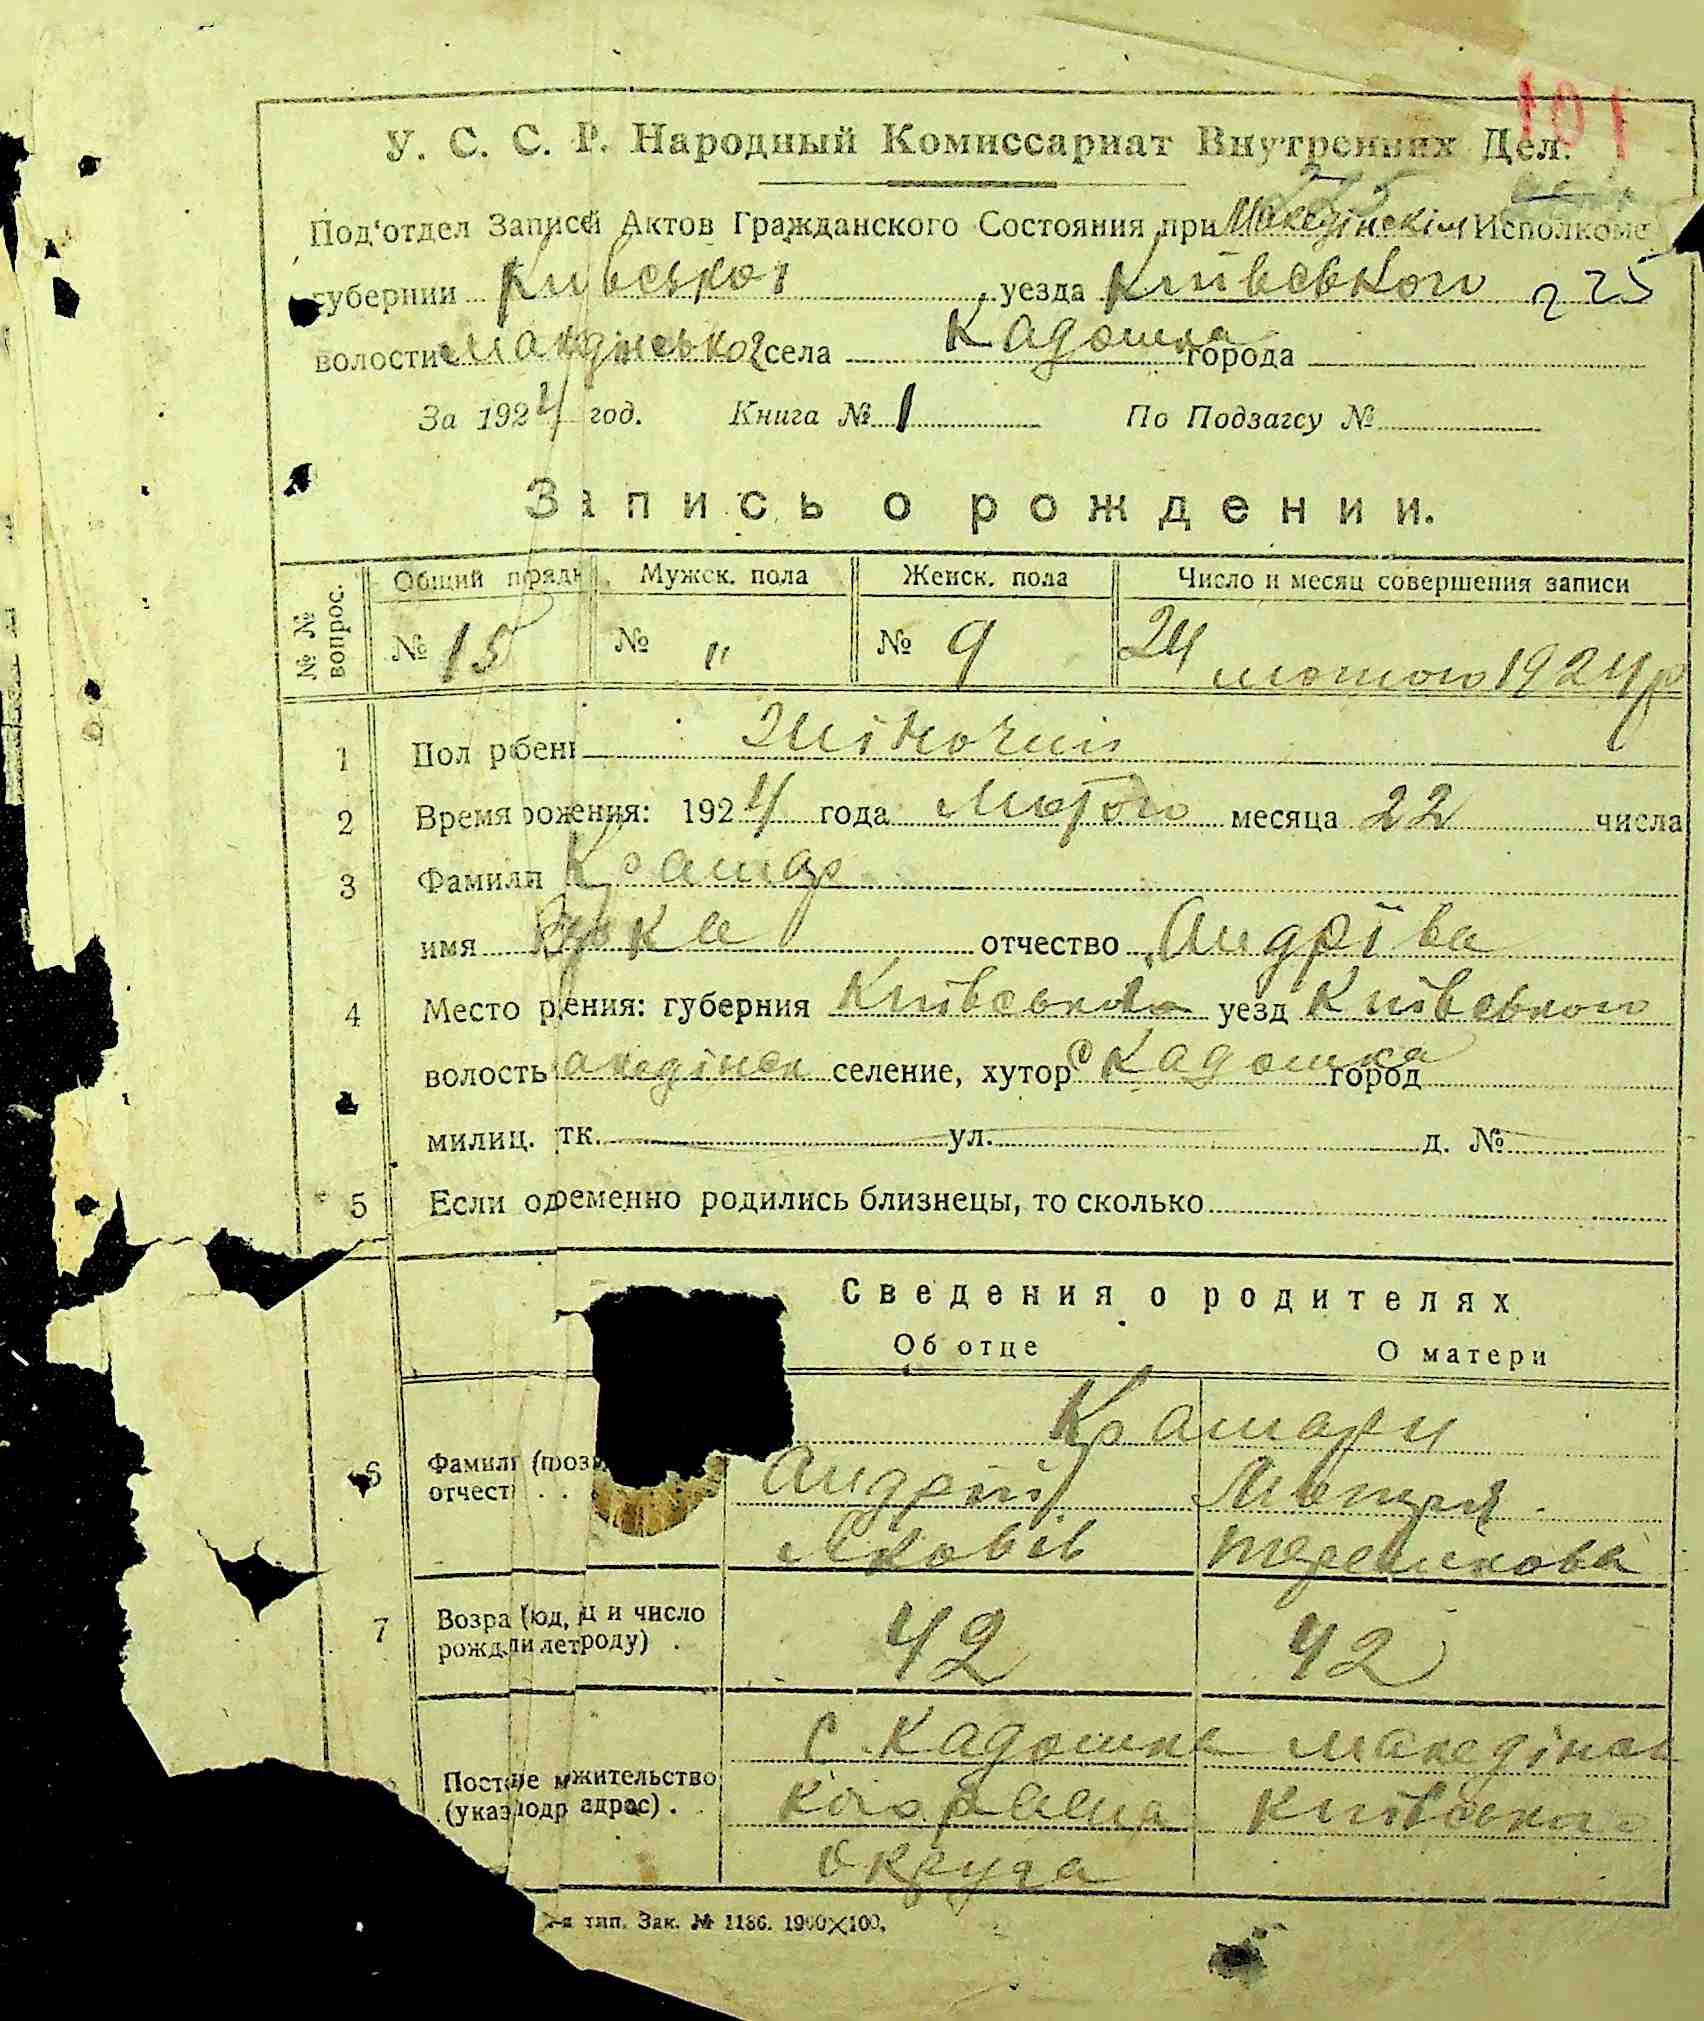 101
У. С. С. Р. Народный Комиссариат Внутренних Дел.
Под'отдел Записей Актов Гражданского Состояния при Исполкоме
губернии Київської уезда Київської 225
волости села Кадомка города
За 1924 год. Книга № 1 По Подзагсу №
Запись о рождении.
№ № вопрос. Общий прядк Мужск. пола Женск. пола Число и месяц совершения записи
№ 15 № " № 9 24 лютого 1924 р
1 Пол рбен жіночий
2 Время рожения: 1924 года Лютого месяца 22 числа
3 Фамили Крамар
имя отчество Андріїва
4 Место рения: губерния Київська уезд Київського
волость селение, хутор с Кадомка город
милиц. тк. ул. д. №
5 Если одременно родились близнецы, то сколько
Сведения о родителях
Об отце О матери
Крамари
6 Фамили (проз Андрій
отчест Яковів
7 Возра (год, ц и число 42 42
рожд. ли лет роду) .
с. Кадомка
Пост е м жительство Київсько
(указ подр адрес) .
Округа
тип. Зак. № 1186. 1900×100.